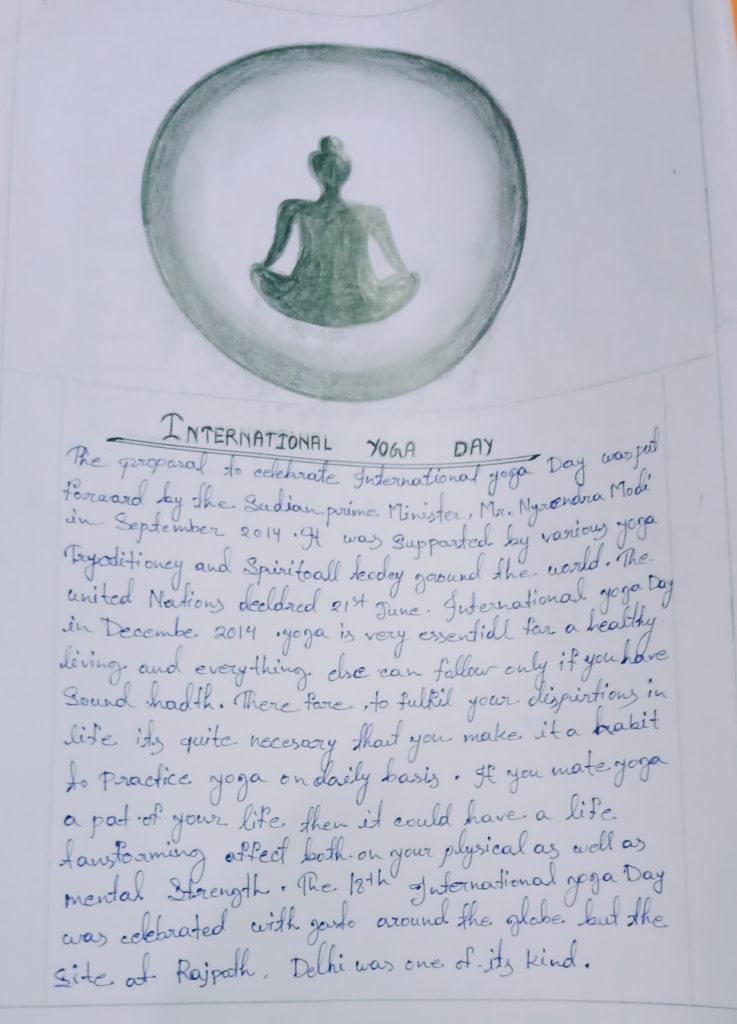 INTERNATIONAL YOGA DAY
The proposal to celebrate International yoga Day was put
forward by the Indian prime Minister, Mr. Nyrendra Modi
in September 2014. It was supported by various yoga
and Spiritoall around the world. The
united Nations decldred 21st June. International yoga Day
in Decembe 2014 .yoga is very essentidl for a healthy
living and everything else can follow only if you have
Sound hadth. There fore, to fulfil your dispirtions in
life its quite necesary that you make it a habit
to Practice yoga on daily basis. If you mate yoga
a pat of your life then it could have a life
tansforming affect both on your physical as well as
mental Strength. The 18th International yoga Day
was celebrated with gusto around the globe but the
Site at Rajpath, Delhi was one of its kind.